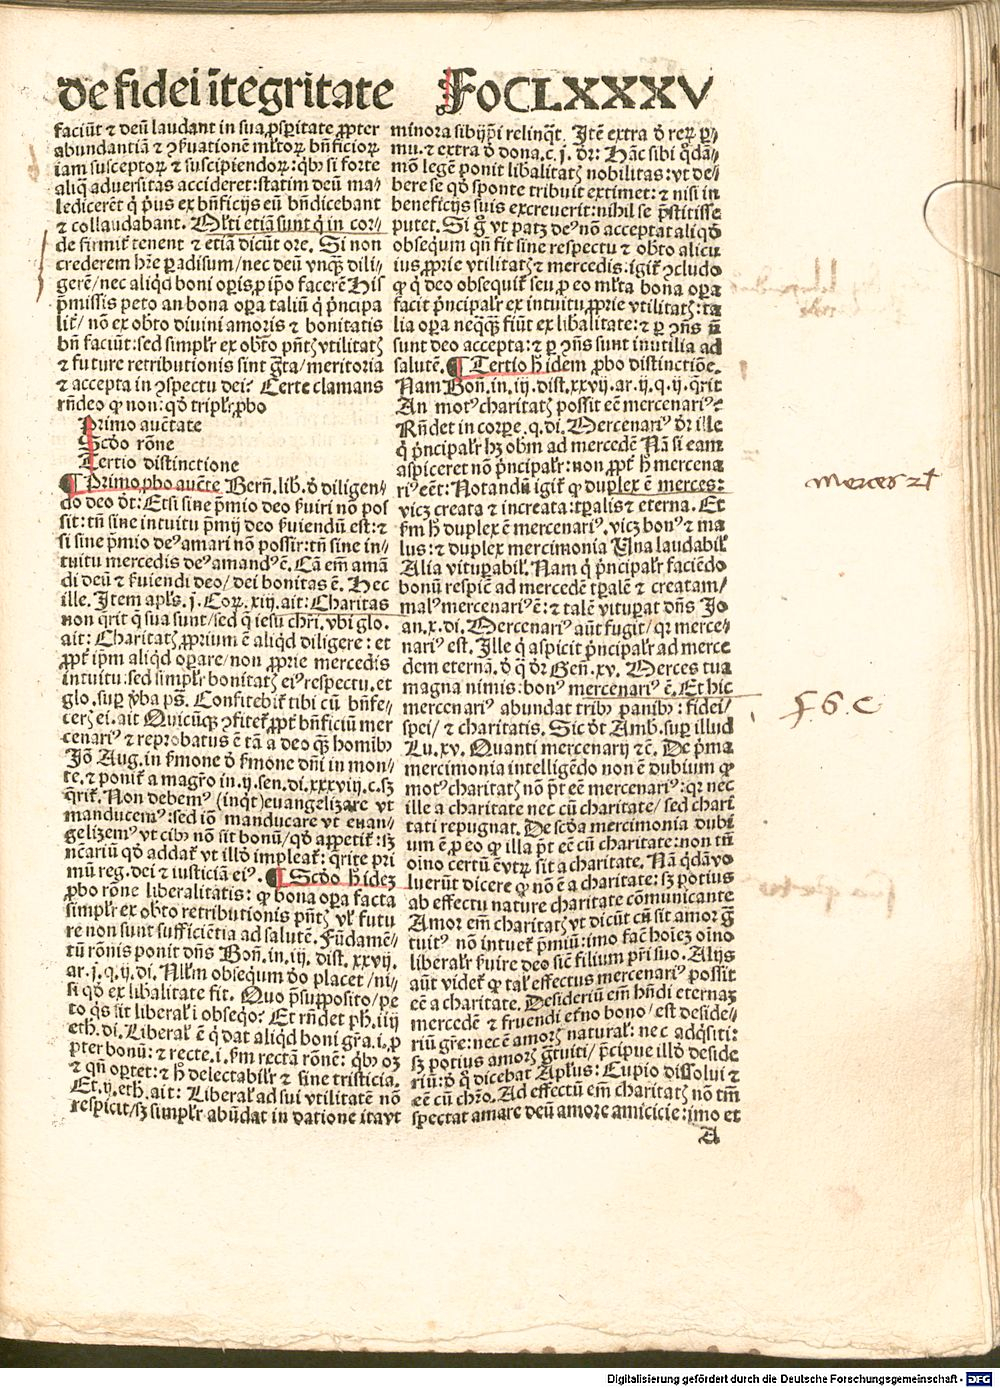 de fidei ītegritate FoCLXXXV
faciūt ⁊ deū laudant in sua ꝓsꝑitate ꝓpter
abundantiā ⁊ ꝯseruationem mĺtoꝝ bn̄ficioꝝ
iam susceptoꝝ ⁊ suscipiendoꝝ: qbꝰ si forte
aliq̄ adversitas accideret: statim deū ma⸗
ledicerēt q̇ pus ex bn̄ficijs eū bn̄dicebant
⁊ collaudabant. Mĺti etiā sunt q̇ in cor⸗
de firmit tenent ⁊ etiā dicūt ore. Si non
crederem hr̄e ꝑadisum/nec deū vnq̄ꝫ dili⸗
gerē/nec aliqd boni oꝑis ꝓ ip̄o facerē His
p̄missis peto an bona oꝑa taliū q̇ pncipa
lit/ nō ex obto divini amoris ⁊ bonitatis
bn̄ faciūt: sed simplr ex obto pn̄tꝭ vtilitatꝭ
⁊ future retributionis sint gr̄a/meritoria
⁊ accepta in ꝯspectu dei? Certe clamans
rn̄deo ꝙ non: qd̓ triplr ꝓbo
Primo auc̄tate
Scd̓o rōne
Tertio distinctione
¶ Primo ꝓbo auc̄te Bern̄. lib. d̓ diligen⸗
do deo dt̄: Etsi sine p̄mio deo ẜuiri nō pos
sit: tn̄ sine intuitu p̄mij deo ẜuiendū est: ⁊
si sine p̄mio deꝰ amari nō possit: tn̄ sine in⸗
tuitu mercedis deꝰ amandꝰ ē. Cā em̄ amā
di deū ⁊ ẜuiendi deo/ dei bonitas ē. Hec
ille. Item apl̄s. j. Coꝝ. xiij. ait: Charitas
non q̄rit q̄ sua sunt/sed q̄ iesu chr̄i. vbi glo.
ait: Charitatꝭ ꝓprium ē aliqd diligere: et
ꝓpt ip̄m aliqd oꝑare/non ꝓprie mercedis
intuitu: sed simplr bonitatꝭ eiꝰ respectu. et
glo. suꝑ v̓ba ps̄. Confitebit tibi cū bn̄fe⸗
cerꝭ ei. ait Quicūqꝫ ꝯfitet ꝓpt bn̄ficiū mer
cenariꝰ ⁊ reprobatus ē tā a deo q̄ꝫ homibꝰ
Jō Aug. in ẜmone d̓ ẜmone dn̄i in mon⸗
te. ⁊ ponit a magr̄o in. ij. sen. di. xxxviij. c. sꝫ
q̄rit. Non debemꝰ (inqt) evangelizare vt
manducemꝰ: sed iō manducare vt evan⸗
gelizemꝰ vt cibꝰ nō sit bonū/ qd̓ appetit: sꝫ
nc̄ariū qd̓ addat vt illd̓ impleat: q̄rite pri
mū reg. dei ⁊ iusticiā eiꝰ. ¶ Scd̓o h̄ idez
ꝓbo rōne liberalitatis: ꝙ bona oꝑa facta
simplr ex obto retributionis pn̄tꝭ vĺ futu
re non sunt sufficiētia ad salutē. Fūdamē⸗
tū rōnis ponit dn̄s Bon̄. in. iij. dist. xxvij.
ar. j. q. ij. di. Nllm̄ obsequm d̓o placet/ni⸗
si qd̓ ex libalitate fit. Quo p̄supposito/pe
to q̇s sit liberal i obseqo? Et rn̄det ph̄. iiij
eth. di. Liberal ē q̇ dat aliqd boni gr̄a. i. ꝓ
pter bonū: ⁊ recte. i. ẜm rectā rōnē: qbꝰ oꝫ
⁊ qn̄ oꝑtet: ⁊ h̄ delectabilr ⁊ sine tristicia.
Et. ij. eth. ait: Liberal ad sui vtilitatē nō
respicit/sꝫ simplr abūdat in datione itavt
minora sibijp̄i relinq̄t. Itē extra d̓ reꝝ ꝑ⸗
mu. ⁊ extra d̓ dona. c. j. dr̄: Hāc sibi q̄dā⸗
mō legē ponit libalitatꝭ nobilitas: vt de⸗
bere se qd̓ sponte tribuit extimet: ⁊ nisi in
beneficijs suis excreverit: nihil se p̄stitisse
putet. Si g̊ vt patꝫ deꝰ non acceptat aliqd̓
obsequm qn̄ fit sine respectu ⁊ obto alicu
ius ꝓprie vtilitatꝭ ⁊ mercedis: igit ꝯcludo
ꝙ q̇ deo obsequit seu ꝓ eo mĺta bona oꝑa
facit pncipalr ex intuitu ꝓprie vtilitatꝭ: ta
lia oꝑa neq̄qꝫ fiūt ex libalitate: ⁊ ꝑ ꝯn̄s nō
sunt deo accepta: ⁊ ꝑ ꝯn̄s sunt inutilia ad
salutē. ¶ Tertio h̄ idem ꝓbo distinctiōe.
Nam Bon̄. in. iij. dist. xxvij. ar. ij. q. ij. q̄rit
An motꝰ charitatꝭ possit eē mercenariꝰ?
Rn̄det in corpe. q. di. Mercenariꝰ dr̄ ille
q̇ pncipalr hꝫ obm ad mercedē Nā si eam
aspiceret nō pncipalr: non ꝓpt h̄ mercena
riꝰ eēt: Notandū igit ꝙ duplex ē merces:
vicꝫ creata ⁊ increata: tꝑalis ⁊ eterna. Et
ẜm h̄ duplex ē mercenariꝰ. vicꝫ bonꝰ ⁊ ma
lus: ⁊ duplex mercimonia Una laudabil
Alia vituꝑabil. Nam q̇ pncipalr faciēdo
bonū respic̄ ad mercedē tꝑalē ⁊ creatam/
malꝰ mercenariꝰ ē: ⁊ talē vituꝑat dn̄s Jo
an. x. di. Mercenariꝰ aūt fugit/ qꝛ merce⸗
nariꝰ est. Ille q̇ aspicit pncipalr ad merce
dem eternā. d̓ q̇ dr̄ Gen̄. xv. Merces tua
magna nimis: bonꝰ mercenariꝰ ē. Et hic
mercenariꝰ abundat tribꝰ panibꝰ: fidei/
spei/ ⁊ charitatis. Sic dt̄ Amb. suꝑ illud
Lu. xv. Quanti mercenarij ⁊c̄. De p̄ma
mercimonia intelligēdo non ē dubium ꝙ
motꝰ charitatꝭ nō pt̄ eē mercenariꝰ: qꝛ nec
ille a charitate nec cū charitate/ sed chari
tati repugnat. De scd̓a mercimonia dubi
um ē ꝓ eo ꝙ illa pt̄ eē cū charitate: non tn̄
oīno certū ē vtꝝ sit a charitate. Nā q̇dā vo
luerūt dicere ꝙ nō ē a charitate: sꝫ potius
ab effectu nature charitate cōmunicante
Amor em̄ charitatꝭ vt dicūt cū sit amor gra
tuitꝰ nō intuet p̄miū: imo fac̄ hoīez oīno
liberalr ẜuire deo sic̄ filium pr̄i suo. Alijs
aūt videt ꝙ tal effectus mercenariꝰ possit
eē a charitate. Desideriū em̄ hn̄di eternaꝫ
mercedē ⁊ fruendi et̓no bono/est deside⸗
riū gr̄e: nec ē amorꝭ natural: nec adqsiti:
sꝫ potius amorꝭ gratuiti/ pncipue illd̓ deside
riū: d̓ q̇ dicebat Apl̄us: Cupio dissolui ⁊
eē cū chr̄o. Ad effectū em̄ charitatꝭ nō tm̄
spectat amare deū amore amicicie: imo et
A
merces 2ꝉ
f. 6. c
Digitalisierung gefördert durch die Deutsche Forschungsgemeinschaft - DFG